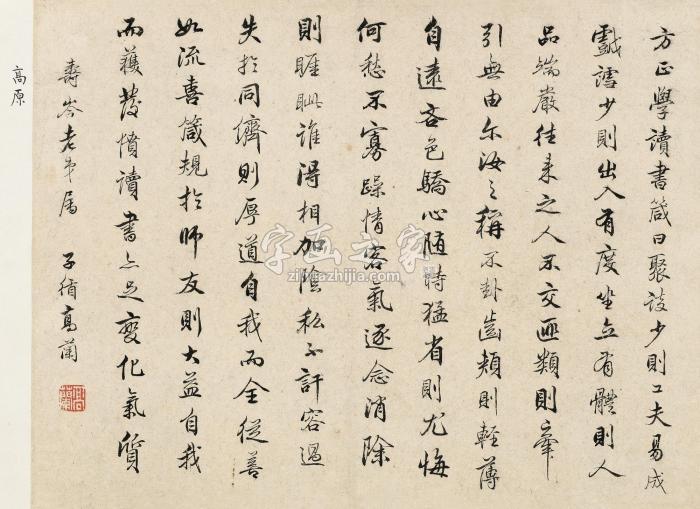 方正學讀書箴曰聚談少則工夫易成
戲謔少則出入有度坐立有體則人
品端嚴往來之人不交匪類則牽
引無由尔汝之稱不卦齒頰則輕薄
自遠吝色驕心随時猛省則尤悔
何愁不寡躁情客氣逐念消除
則睚眦誰得相加陰私不訐容過
失於同儕則厚道自我而全從善
如流喜箴規於師友則大益自我
而獲發憤讀書亦足變化氣質
壽岑老弟屬 子循高蘭
高原
字画之家
zihuazhijia.com